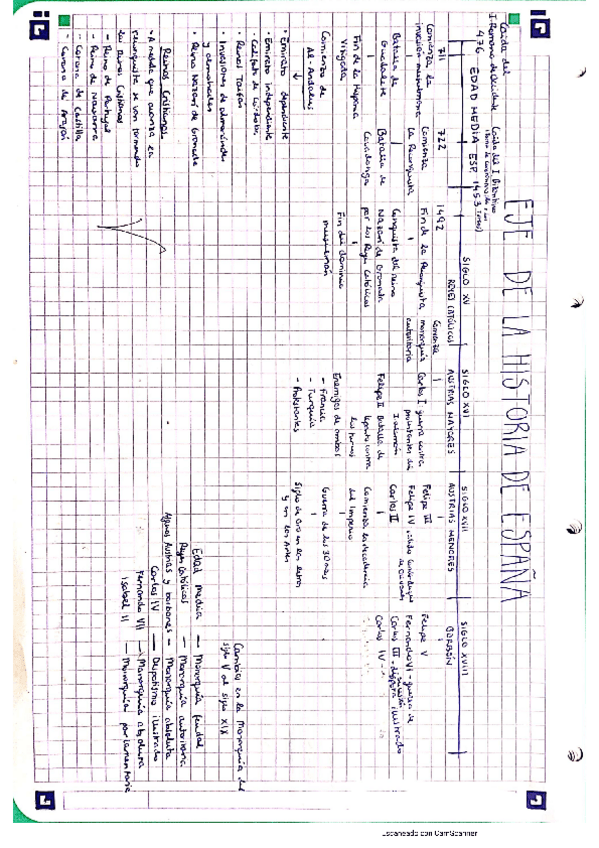 EJE DE LA HISTORIA DE ESPAÑA
Caida del
I. Romano de Occidente
476
EDAD MEDIA ESP.
1453
Caida del I. Bizantino
711
Comienza la
invasión musulmana
Batalla de
Guadalete
Fin de la Hispania
Visigoda
Comienzo de
Al-Andalus
• Emirato dependiente
• Emirato independiente
• Califato de Córdoba
• Reinos Taifas
• Invasiones de almorávides
y almohades
• Reino Nazarí de Granada
Reinos Cristianos
• A medida que avanza la
reconquista se van formando
los Reinos Cristianos
- Reino de Portugal
- Reino de Navarra
- Corona de Castilla
- Corona de Aragón
722
Comienza
La Reconquista
Batalla de
Covadonga
SIGLO XV
REYES CATÓLICOS
1492
Fin de la Reconquista
Conquista del Reino
Nazarí de Granada
por los Reyes Católicos
Fin del dominio
musulmán
Comienza
monarquía
autoritaria
SIGLO XVI
AUSTRIAS MAYORES
Carlos I guerra contra
protestantes del
I. alemán
Felipe II Batalla de
Lepanto contra
los turcos
Enemigos de ambos
- Francia
- Turquía
- Protestantes
SIGLO XVII
AUSTRIAS MENORES
Felipe III
Felipe IV valido Conde duque
de Olivares
Carlos II
Comienza la decadencia
del Imperio
Guerra de los 30 años
Siglo de Oro en las letras
y en las artes
SIGLO XVIII
BORBÓN
Felipe V
Fernando VI - guerra de
sucesión
Carlos III - déspota ilustrado
Carlos IV -
Cambios en la Monarquía del
siglo V al siglo XIX
Edad media — Monarquía feudal
Reyes Católicos — Monarquía autoritaria
Algunos Austrias y borbones — Monarquía absoluta
Carlos IV — Despotismo ilustrado
Fernando VII — Monarquía absoluta
Isabel II — Monarquía parlamentaria
Escaneado con CamScanner